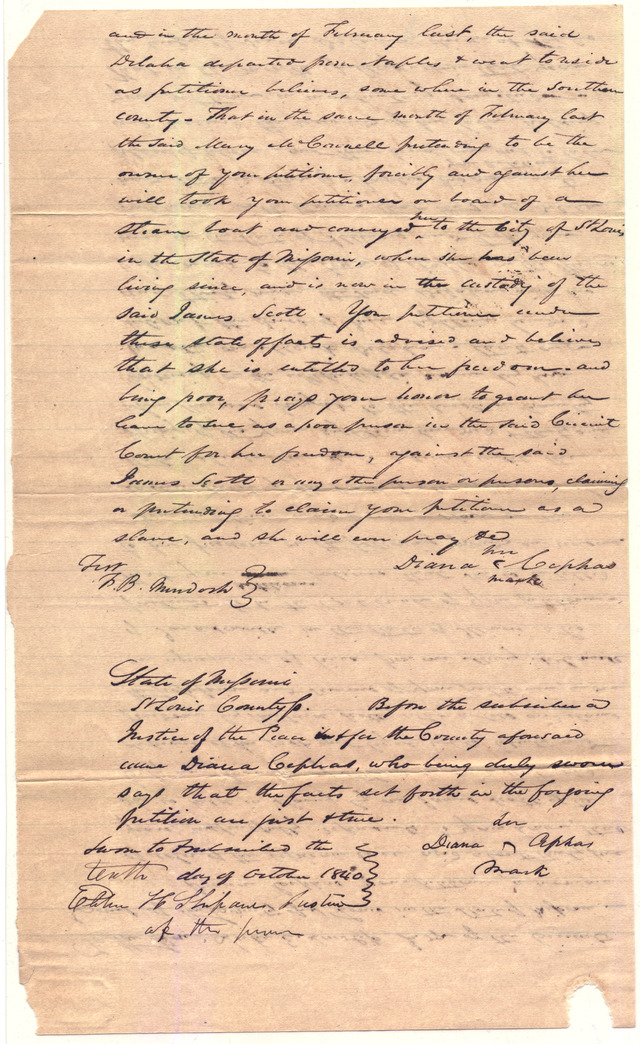 and in the month of February last, the said
Delaha departed from Naples & went to reside
as petitioner believes, some where in the Southern
county - That in the same month of February last
the said Mary McConnell pretending to be the
owner of your petitioner, forcibly and against her
will took your petitioner on board of a
steam boat and conveyed her to the City of St Louis
in the State of Missouri, where she has been
living since, and is now in the custody of the
said James Scott. Your petitioner under
these state of facts is advised and believes
that she is entitled to her freedom and
being poor, prays your honor to grant her
leave to sue as a poor person in the said Circuit
Court for her freedom, against the said
James Scott or any other person or persons, claiming
or pretending to claim your petitioner as a
slave, and she will ever pray &c
Test
F. B. Murdoch
Diana her Cephas
mark
State of Missouri
St Louis County ss. Before the subscriber a
Justice of the Peace in & for the County aforesaid
came Diana Cephas, who being duly sworn
says that the facts set forth in the forgoing
petition are just & true.
Sworn to & subscribed the
tenth day of October 1840
H Shepard Justice
of the peace
her
Diana Cephas
mark